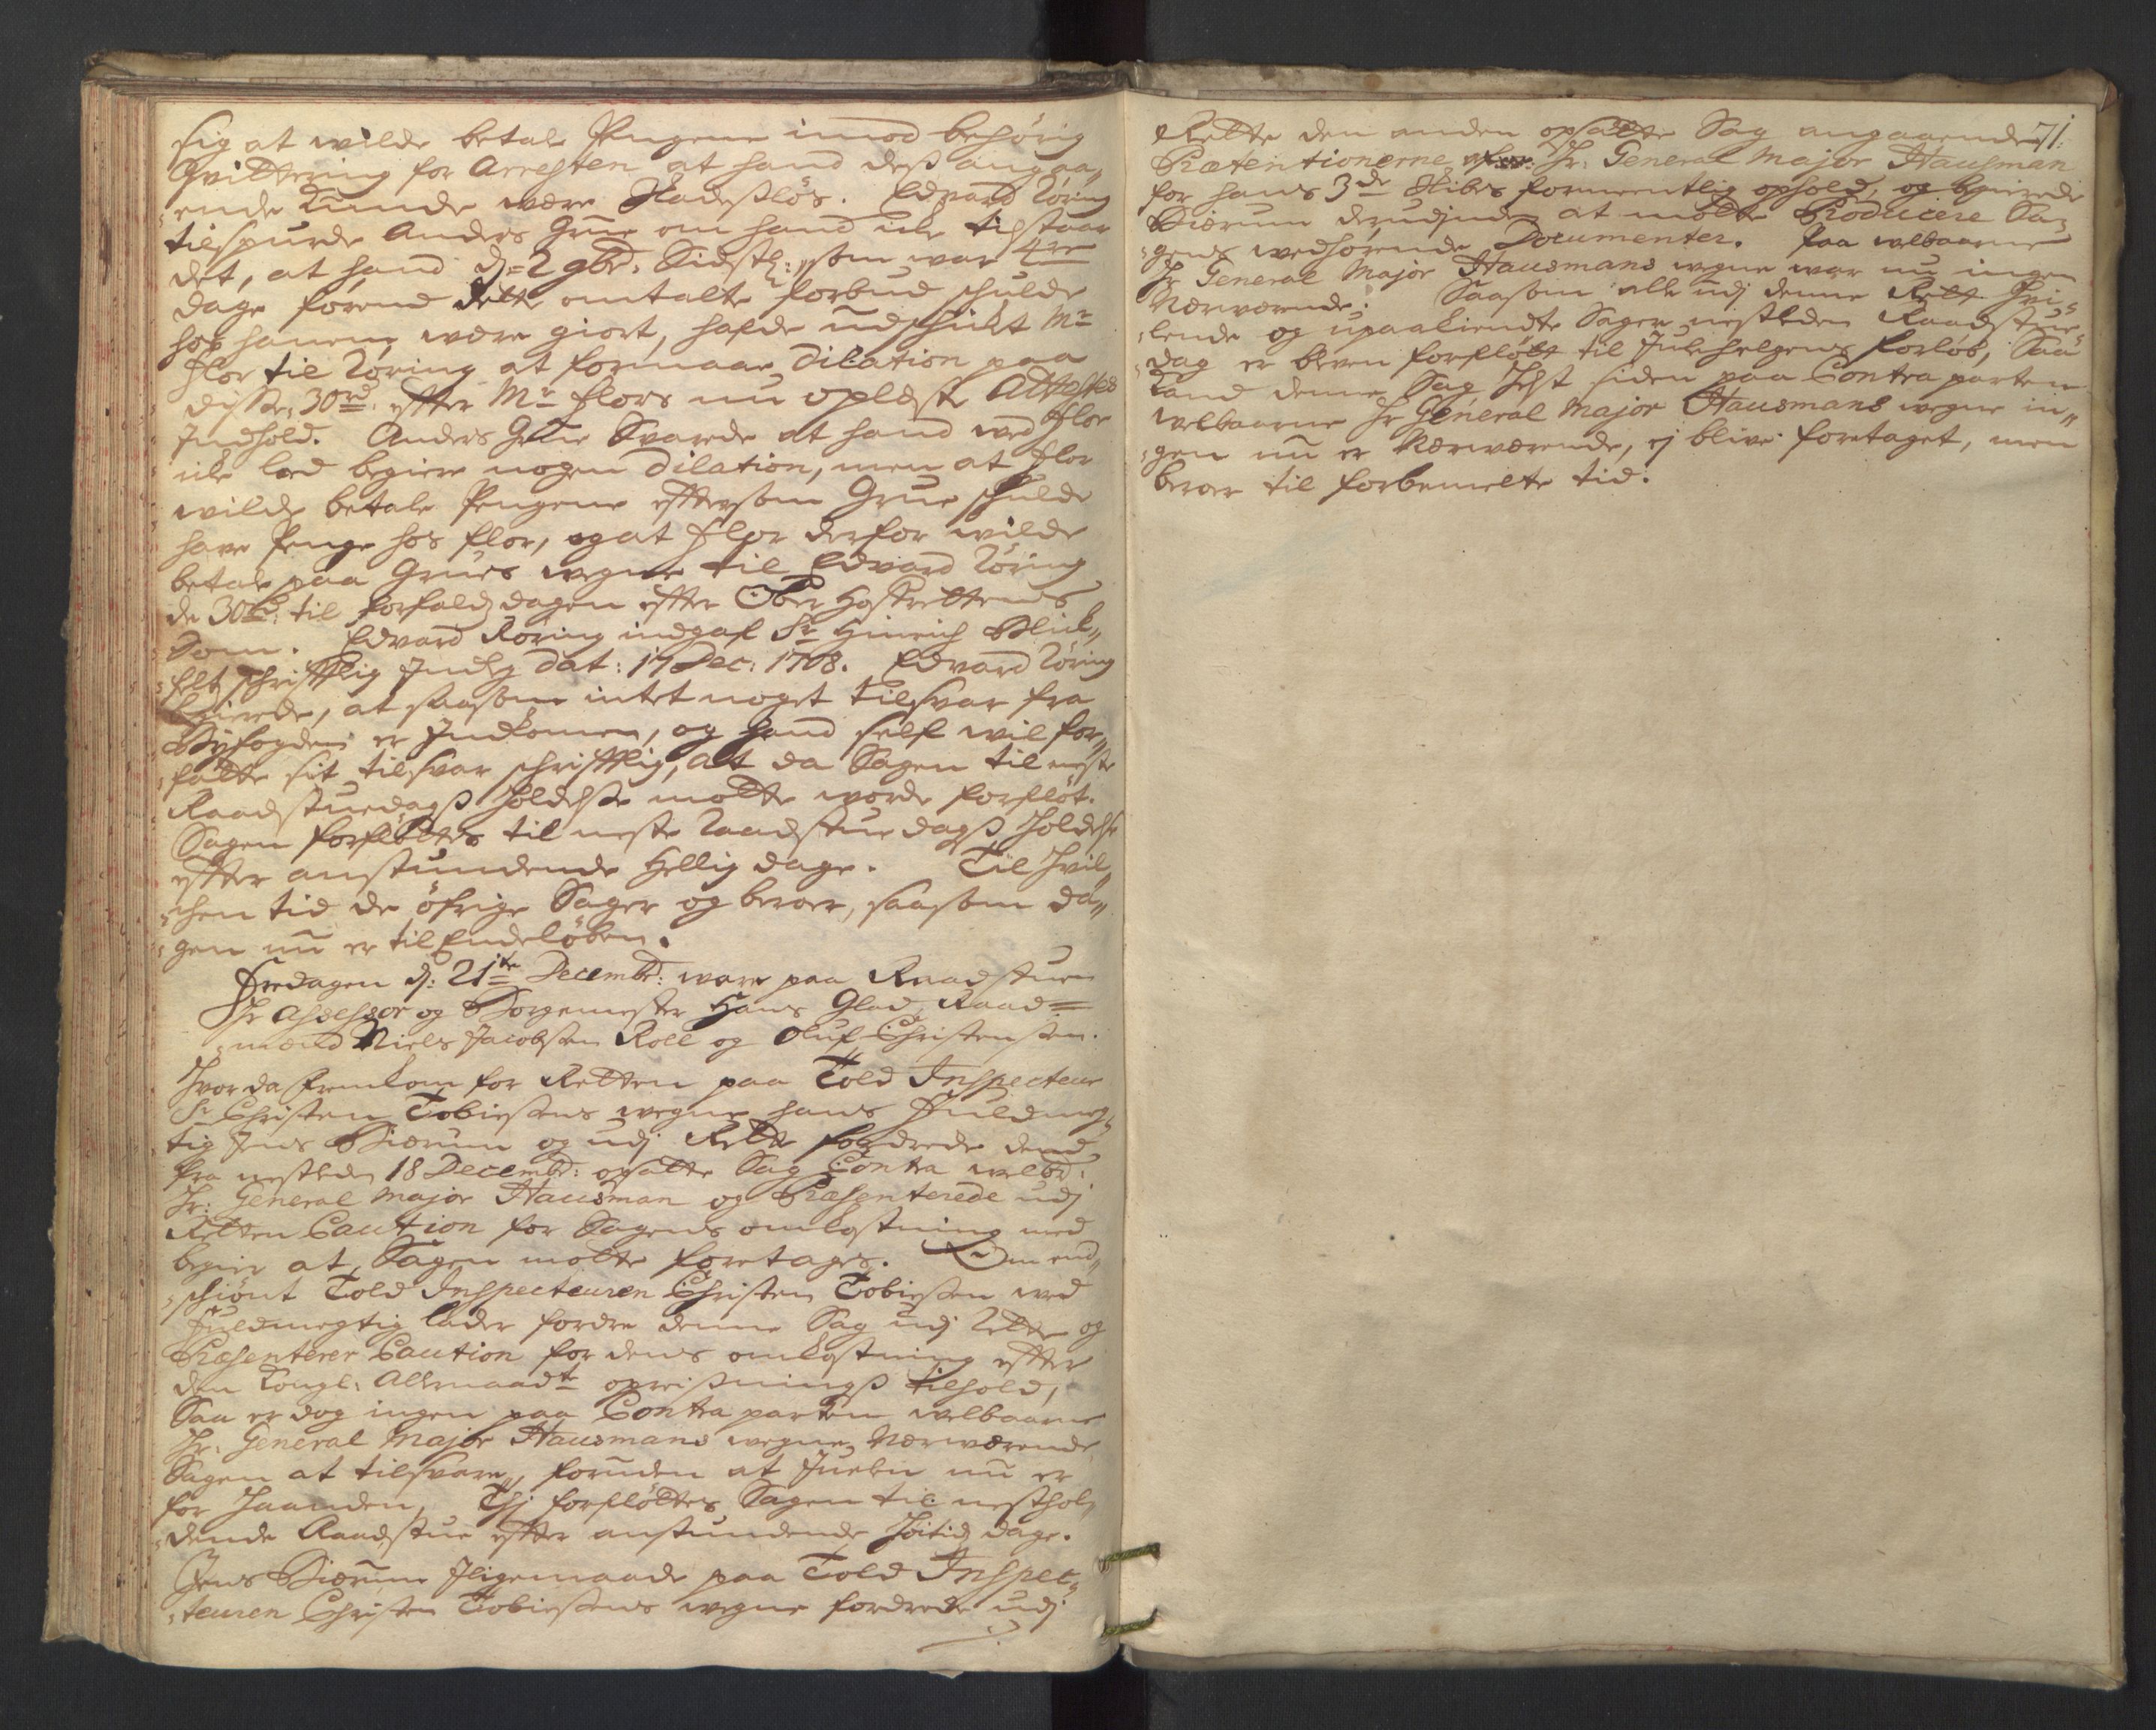 sig at wilde betale Pengene imod behörig
Qvittering for Arresten at hand deß angaa„
„ende kunde være skadeslös. Edvard Röring
tilspurde Anders Grue om hand icke tilstaar
det, at hand dj= 2 9br: Sidstl: som war 4re
dage förend dette omtalte forbud skulde
hos hanem være giort, hafde udskickt Mr
Flor til Röring at formaae Dilation paa
disse 30rd. effter Mr Flors nu oplæste Attestes
Indhold. Anders Grue Svarede at hand wed Flor
icke lod begiere nogen Dilation, men at Flor
wilde betale Pengene effttersom Grue skulde
have Penge hos Flor, og at Flor derfor wilde
betale paa Grues wegne til Edvard Röring
de 30rd: til forfalds dagen efter Ober Hoffrettens
Dom. Edvard Röring indgaf Sr Hinrich Blick„
„felt skrifftlig Indlæg dat: 17 Dec: 1708. Edvard Röring
begierede, at saasom intet noget tilsvar fra
Byfogden er Indkomen, og hand self wil for„
„fatte sit tilsvar skrifftlig, at da Sagen til neste
Raadstuedagß holdelse motte worde forflöt.
Sagen forflöttes til neste Raadstuedagß holdelse
effter anstundende Hellig dage. Til hvil„
„chen tid de öfrige Sager og beroer, saasom da„
„gen nu er til Ende löben.
Fredagen dj: 21te Decembr: ware paa Raadstuen
Hr Assessor og Borgemester Hans Glad, Raad=
mænd Niels Jacobsen Roll og Oluf Christensen.
Hvor da fremkom for Retten paa Told Inspecteur
Sr Christen Tobiesens wegne hans fuldmeg„
tig Jens Biörum og udj Rette fordrede dend
fra nestleden 18 Decembr: opsatte Sag Contra welbr:
Hr: General Major Hausman og Præsenterede udj
Retten Caution for Sagens omkostning med
begier at Sagen motte foretages. Om end„
„skiönt Told Inspecteuren Christen Tobiesen wed
fuldmegtig lader fordre denne Sag udj Rette og
Præsenterer Caution for dens omkostning effter
den Kongl: Allernaadte opreisnings tilhold,
Saa er dog ingen paa Contra parten welbaarne
Hr: General Major Hausmans wegne Nærwærende
Sagen at tilsvare, foruden at Juelen nu er
for Haanden, Thj forflöttes Sagen til nesthol„
„dende Raadstue effter anstundende Höitids dage.
Jens Biörum Iligemaade paa Told Inspec„
„teuren Christen Tobiesens wegne fordrede udj
71.
Rette den anden opsatte Sag angaaende
Prætentionerne Hr: General Major Hausman
for hans 3de Skibes formeentlig ophold, og begierede
Biörum derudinden at motte Producere Sa„
„gens wedhörende Documenter. Paa welbaarne
Hr General Major Hausmans wegne war nu ingen
Nærwærende. Saasom alle udj denne Rett Hvi„
„lende og upaakiendte Sager nestleden Raadstue„
dag er bleven forflött til Julehelgens forlöb, Saa
kand denne Sag helst siden paa Contra parten
welbaarne Hr General Major Hausmans wegne in„
„gen nu er Nærwærende, ej blive foretaget, men
beroer til forbemelte tid.